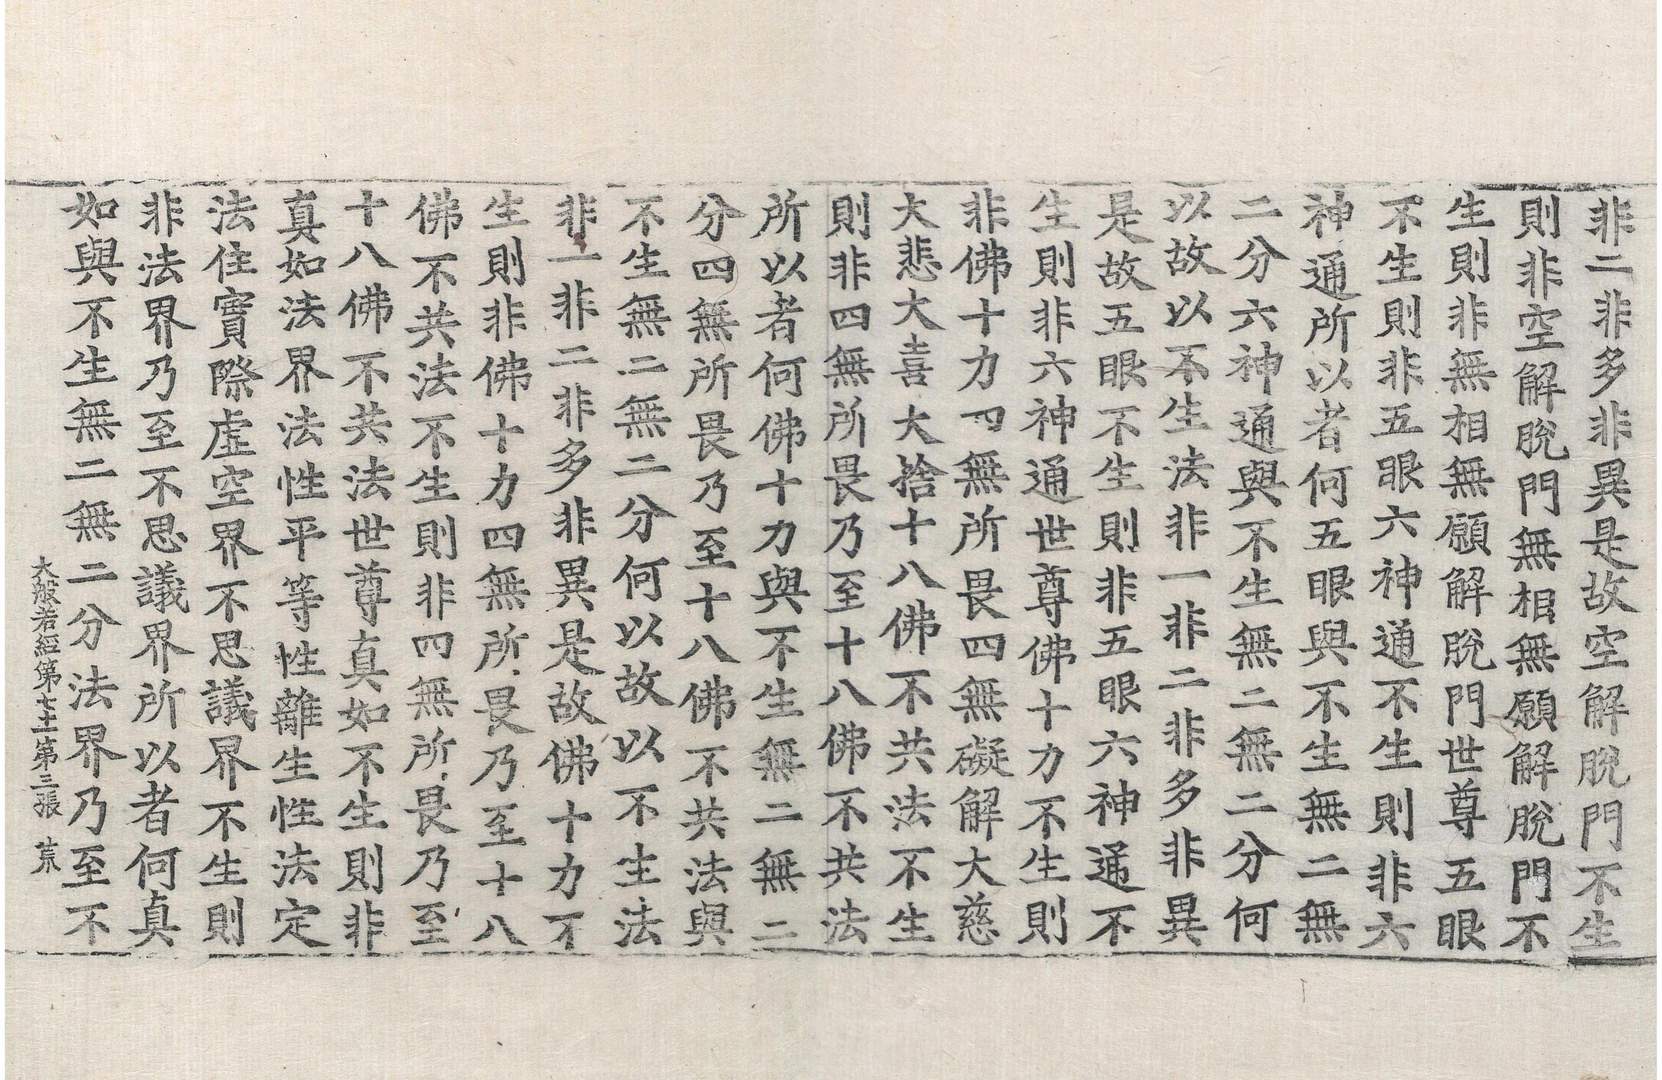 非二非多非異是故空解脫門不生
則非空解脫門無相無願解脫門不
生則非無相無願解脫門世尊五眼
不生則非五眼六神通不生則非六
神通所以者何五眼與不生無二無
二分六神通與不生無二無二分何
以故以不生法非一非二非多非異
是故五眼不生則非五眼六神通不
生則非六神通世尊佛十力不生則
非佛十力四無所畏四無礙解大慈
大悲大喜大捨十八佛不共法不生
則非四無所畏乃至十八佛不共法
所以者何佛十力與不生無二無二
分四無所畏乃至十八佛不共法與
不生無二無二分何以故以不生法
非一非二非多非異是故佛十力不
生則非佛十力四無所畏乃至十八
佛不共法不生則非四無所畏乃至
十八佛不共法世尊真如不生則非
真如法界法性平等性離生性法定
法住實際虛空界不思議界不生則
非法界乃至不思議界所以者何真
如與不生無二無二分法界乃至不
大般若經第七十一第三張 荒